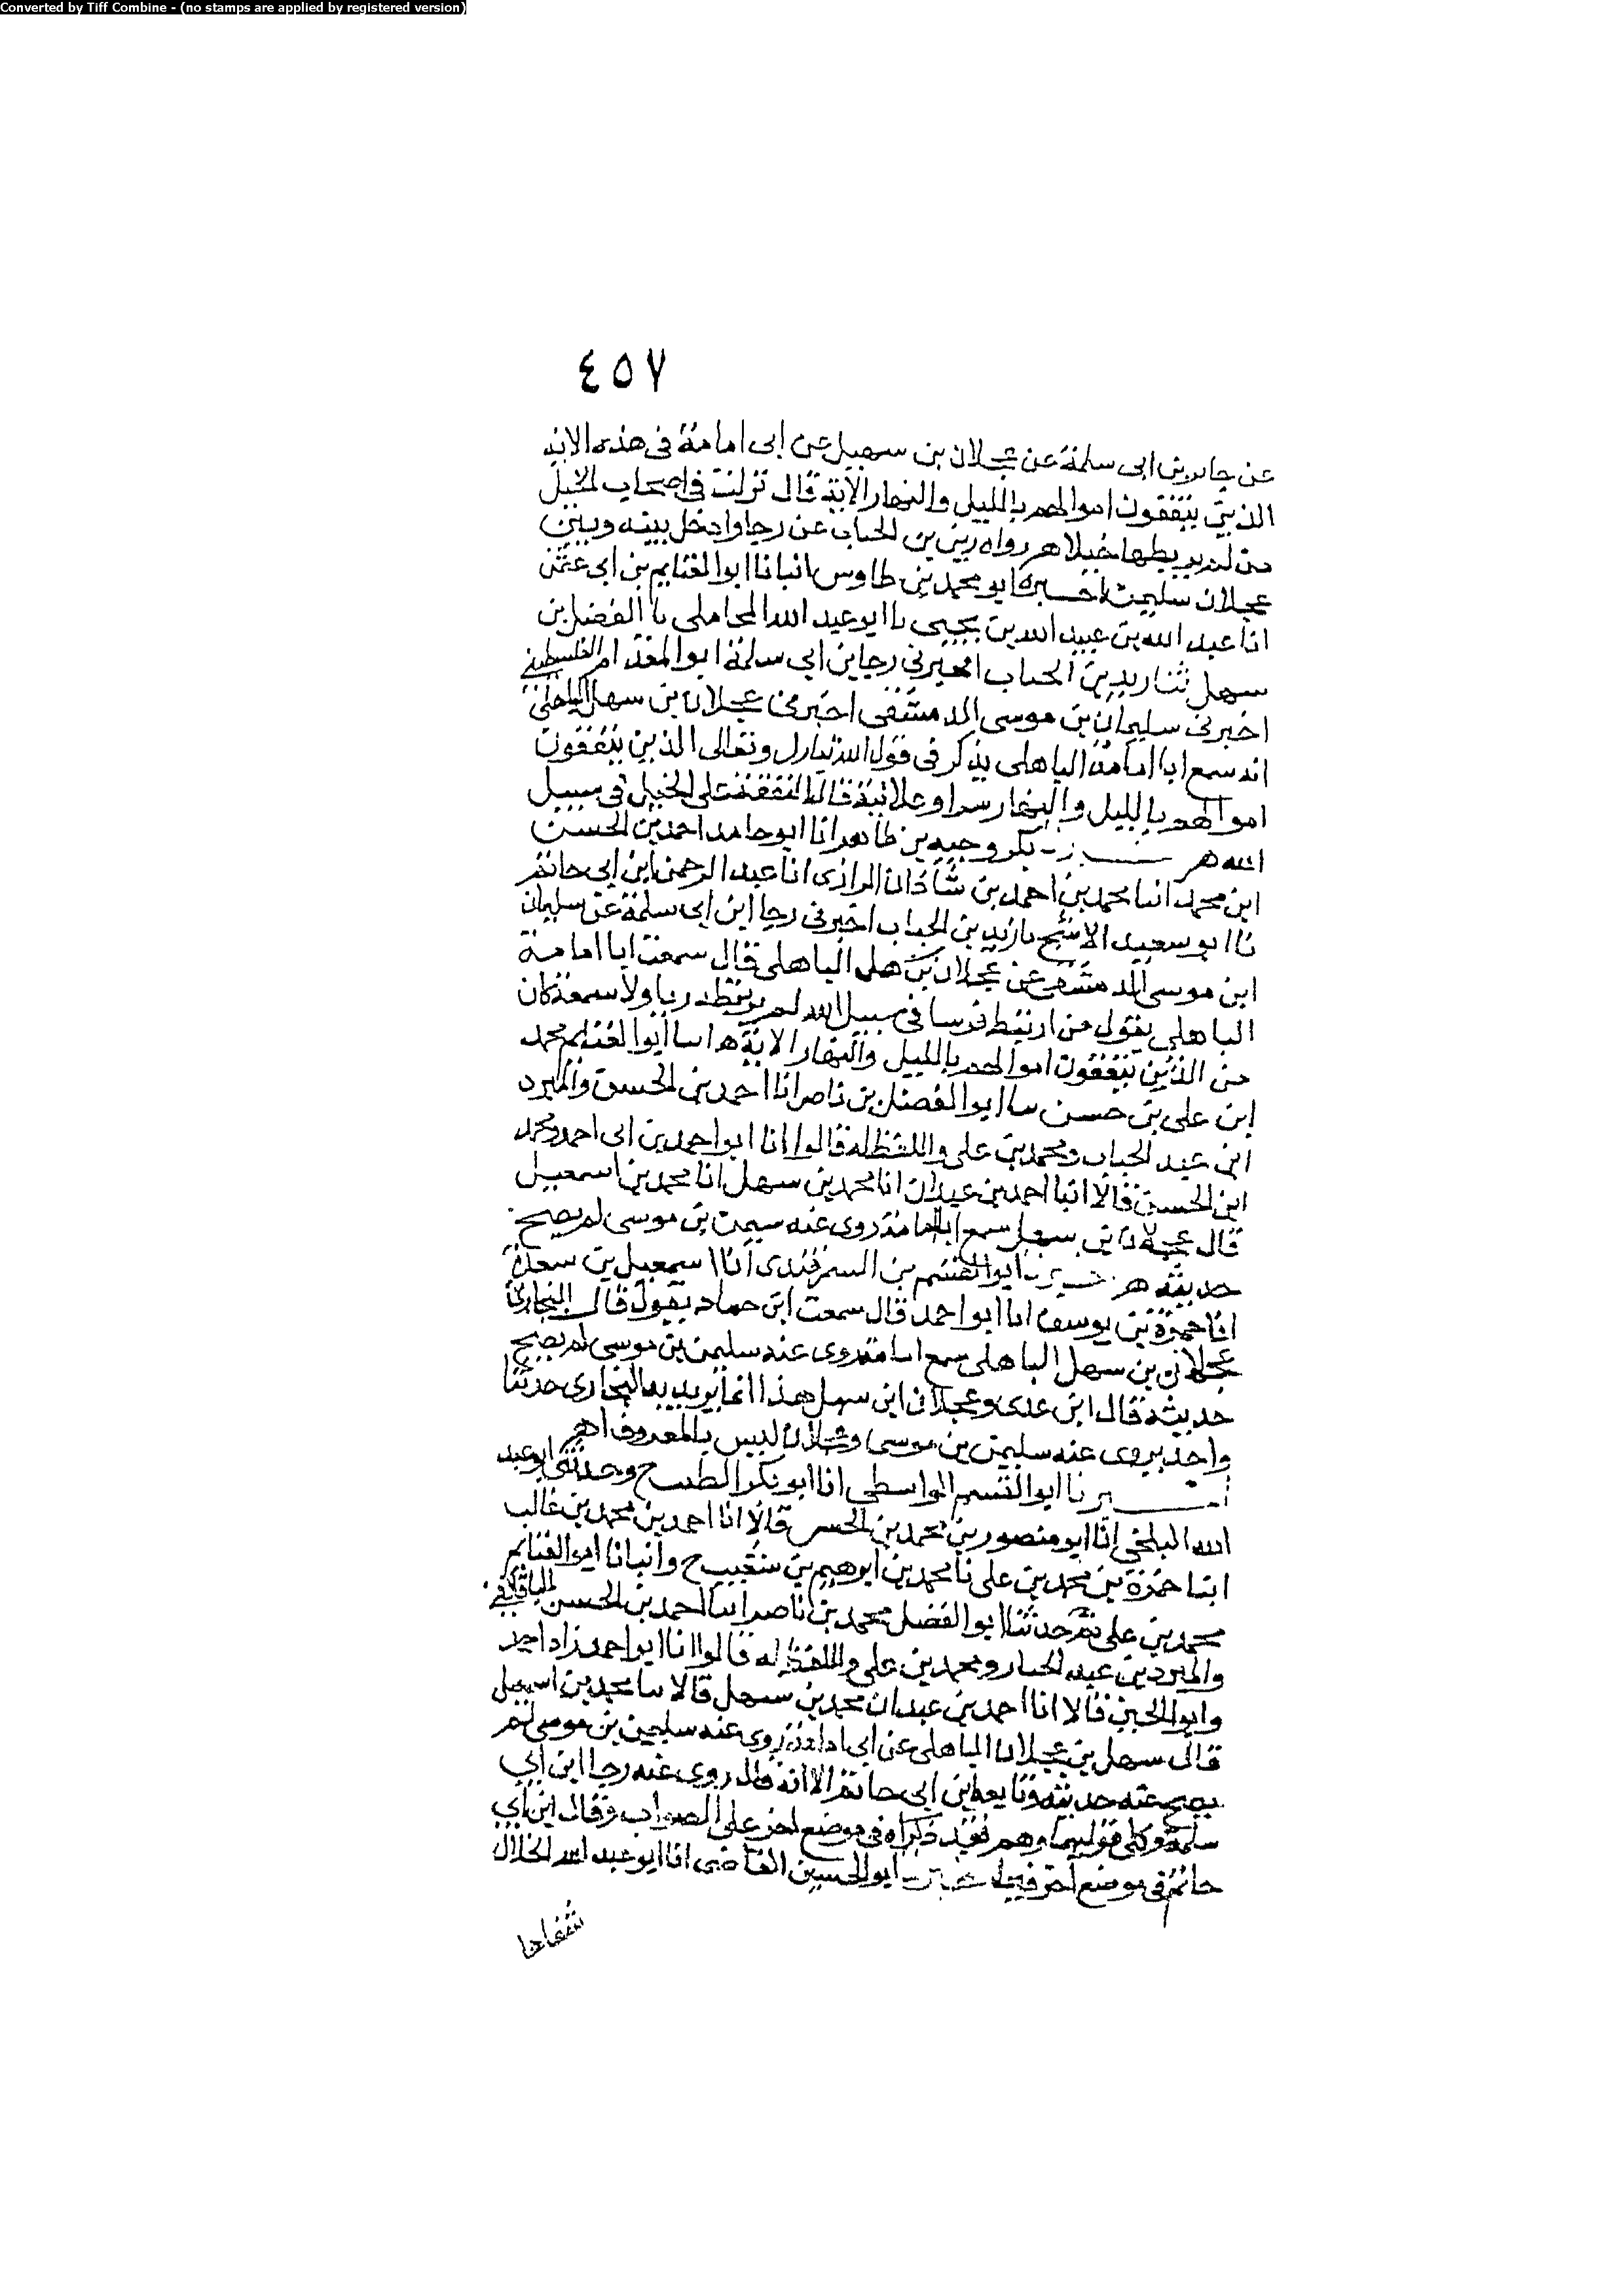 Converted by Tiff Combine - (no stamps are applied by registered version)
٤٥٧
عن جابر بن ابى سلمة عن عجلان بن سهيل عن ابى امامة فى هذه الاية
الذين ينفقون اموالهم بالليل والنهار الاية قال نزلت فى اصحاب الخيل
من لم يربطها خيلا هر رواه زيد بن الحباب عن رجا وادخل بينه وبين
عجلان سليمن اخبرنا ابو محمد بن طاوس انبانا ابو الغنايم بن ابى عثمن
انا عبد الله بن عبيد الله بن يحيى نا ابو عبد الله المحاملى نا الفضل بن
سهل ثنا زيد بن الحباب اخبرنى رجا بن ابى سلمة ابو المقدام الفلسطينى
اخبرنى سليمان بن موسى الدمشقى اخبرنى عجلان بن سهل الباهلى
انه سمع ابا امامة الباهلى يذكر فى قول الله تبارك وتعالى الذين ينفقون
اموالهم بالليل والنهار سرا وعلانية قال النفقة على الخيل فى سبيل
الله هر بكر وجيه بن طاهر انا ابو حامد احمد بن الحسن
ابن محمد انبا محمد بن احمد بن شاذان الرازى انا عبد الرحمن ابن ابى حاتم
نا ابو سعيد الاشج نا زيد بن الحباب اخبرنى رجا ابن ابى سلمة عن سليمان
ابن موسى الدمشقى عن عجلان بن سهل الباهلى قال سمعت ابا امامة
الباهلى يقول من ارتبط فرسا فى سبيل الله لم يرتبطه ريا ولا سمعة كان
من الذين ينفقون اموالهم بالليل والنهار الاية ه انبا ابو الغنايم محمد
ابن على بن حسن نا ابو الفضل بن ناصر انا احمد بن الحسن والمبرد
ابن عبد الجباب ومحمد بن على واللفظ له قالوا انا ابو احمد بن ابى احمد ومحمد
ابن الحسن قالا انبا احمد بن عبدان انا محمد بن سهل انا محمد بن اسمعيل
قال عجلان بن سهل سمع ابا امامة روى عنه سيمن بن موسى لم يصح
حديثه هر خبرنا ابو القسم بن السمرقندى انا اسمعيل بن سعدة
انا حمزة بن يوسف انا ابو احمد قال سمعت ابن حماد يقول قال البخارى
عجلان بن سهل الباهلى سمع ابا امامة روى عنه سليمن بن موسى لم يصح
حديثه قال ابن عدى وعجلان ابن سهل هذا انما يريد به البخارى حديثا
واحد يروى عنه سليمن بن موسى وعجلان ليس بالمعروف اهر
اخبرنا ابو القسم الواسطى انا ابو بكر الخطيب ح وحدثنى ابو عبد
الله البلخى انا ابو منصور بن محمد بن الحسن قالا انا احمد بن محمد بن غالب
انبا حمزة بن محمد بن على نا محمد بن ابرهيم بن شعيب ح وانبانا ابو الغنايم
محمد بن على ثم حدثنا ابو الفضل محمد بن ناصر انبا احمد بن الحسن الباقلانى
والمبرد بن عبد الجبار ومحمد بن على واللفظ له قالوا انا ابو احمد زاد احمد
وابو الحسين قالا انا احمد بن عبدان محمد بن سهل قالا نا محمد بن اسمعيل
قال سهل بن عجلان الباهلى عن ابى امامة روى عنه سليمن بن موسى لم
يصح عنه حديثه وتابعه ابن ابى حاتم الا انه قال روى عنه رجا ابن ابى
سلمة وكلى قوليهما وهم فقد ذكراه فى موضع اخر على الصواب وقال ابن ابى
حاتم فى موضع اخر فيما ابو الحسين القاضى انا ابو عبد الله الخلال
شفاها